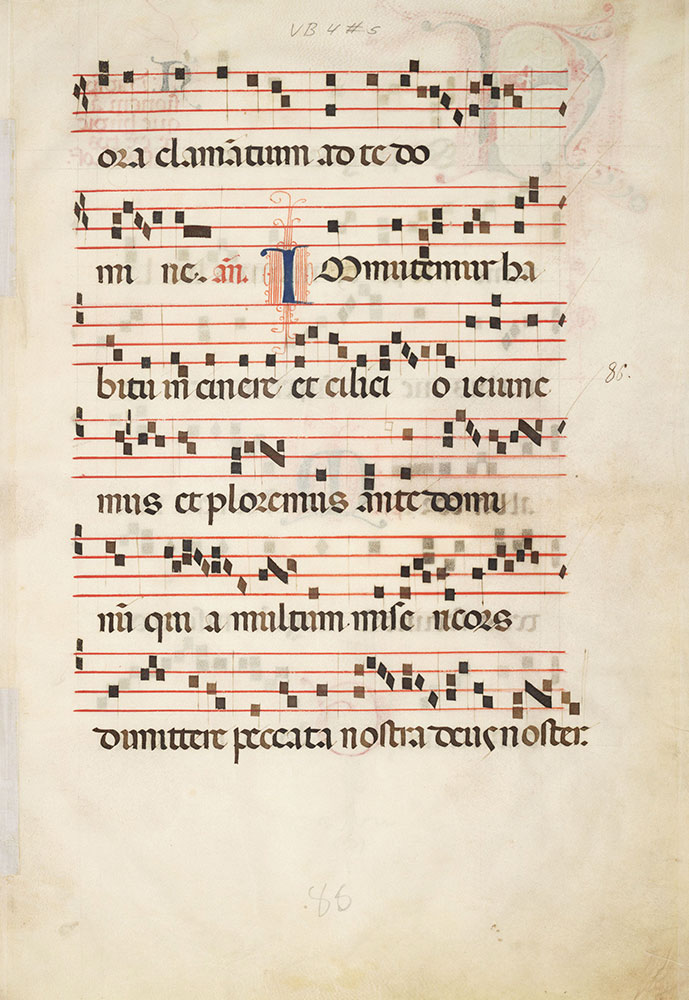 VB 4 # 5
ora clamãtium ad te do
mi ne. añ. Immutemur ha
bitu in cinere et cilici o ieiune
mus et ploremus ante domi
nũ qui a multum mise ricors
dimittere peccata nostra deus noster.
86.
86